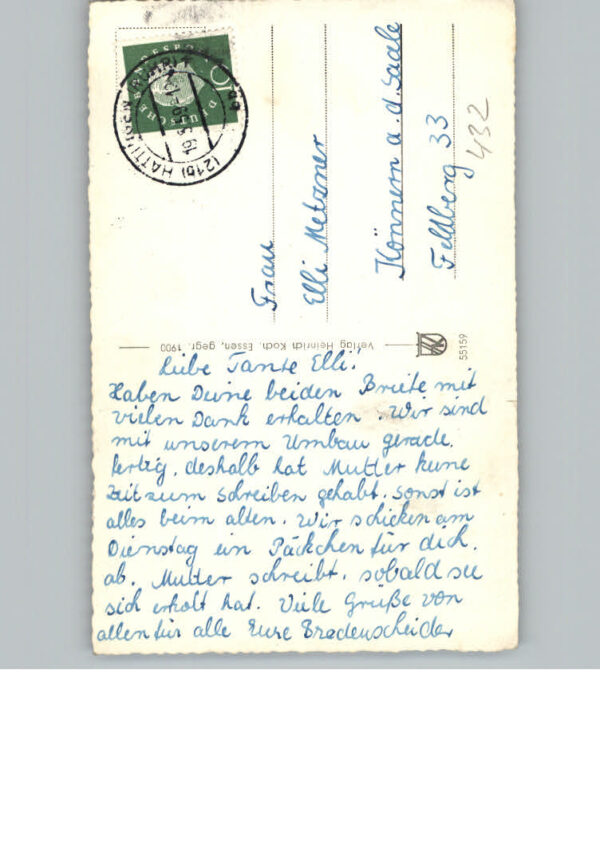 DEUTSCHE BUNDESPOST
10
(21b) HATTINGEN
Frau
Elli Metzner
Könnern a. d. Saale
Feldberg 33
432
Verlag Heinrich Koch, Essen, gegr. 1900
55159
Liebe Tante Elli!
Haben Deine beiden Briefe mit
vielen Dank erhalten. Wir sind
mit unserem Umbau gerade
fertig, deshalb hat Mutter keine
Zeit zum Schreiben gehabt. Sonst ist
alles beim alten. Wir schicken am
Dienstag ein Päckchen für dich
ab. Mutter schreibt, sobald sie
sich erholt hat. Viele Grüße von
allen für alle Eure